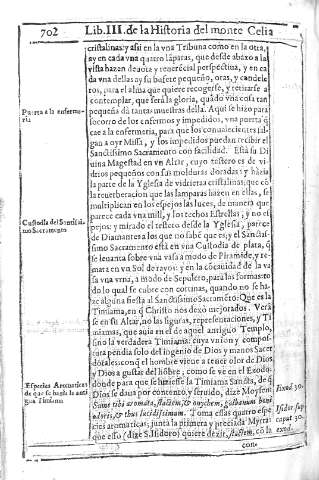 702 Lib. III. de la Historia del monte Celia
cristalinas, y asi en la vna Tribuna como en la otra,
ay en cada vna quatro láparas, que desde abaxo a la
vista hazen deuota y reuerécial perspectiua, y en ca
da vna dellas ay su bufete pequeño, oras, y candele
ros, para el alma que quiere recogerse, y retirarse a
contemplar, que será la gloria, quádo vna cosa tan
pequeña dá tantas muestras della. Aqui se hizo para
Puerta a la enferme-
ria
socorro de los enfermos y impedidos, vna puerta q̃
cae a la enfermeria, para que los conualecientes sal-
gan a oyr Missa, y los impedidos puedan recibir el
Sanctissimo Sacramento con facilidad. Está su Di
uina Magestad en vn Altar, cuyo testero es de vi
drios pequeños con sus molduras doradas: y házia
la parte de la Yglesia de vidrieras cristalinas; que có
la reuerberacion que las lamparas hazen en ellas, se
multiplican en los espejos las luces, de manera que
parece cada vna mill, y los techos Estrellas; y no es
pejos: y mirado el testero desde la Yglesia, parece
de Diamantes a los que no sabé que es; y el Sanctis-
Custodia del Sanctissi-
mo Sacramento
simo Sacramento está en vna Custodia de plata, q̃
se leuanta sobre vna vasa a modo de Piramide, y re
mata en vn Sol de rayos: y en la cócauidad de la va
sa vna vrna, a modo de Sepulcro, para las formas: to
do lo qual se cubre con cortinas, quando no se ha-
ze alguna fiesta al Sanctissimo Sacraméto: Que es la
Timiama, en q̃ Christo nos dexó mejorados. Verá
se en su Altar, no las figuras, representaciones, y Ti
miamas, que auia en el de aquel antiguo Templo,
sino la verdadera Timiama: cuya vnion y compos-
tura pendia solo del ingenio de Dios y manos Sacer
dotales: con q̃ el hombre viene a tener olor de Dios
y Dios a gustar del hóbre; como se ve en el Exodo:
Especies Aromaticas
de que se hazia la anti
gua Timiama
dónde para que se hiziesse la Timiama Sancta, de q̃
Dios se daua por contento, y seruido, dize Moysen:
Exod. 30.
Sume tibi aromata, stactem, & onychem, galbanum boni
odoris, & thus lucidissimum. Toma essas quatro espe
Isidor. sup.
caput 30.
exod.
cies aromaticas; junta la primera y preciada Myrra:
que esso (dize S. Isidoro) quiere dezir, stactem, có la
con-